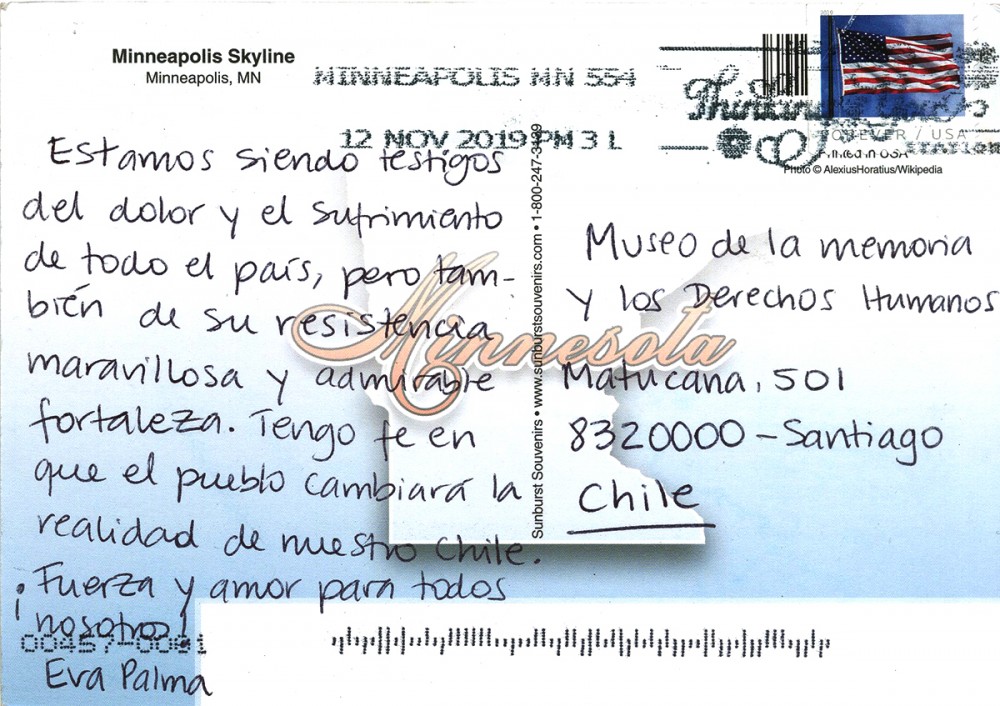 Minneapolis Skyline
Minneapolis, MN
MINNEAPOLIS MN 554
12 NOV 2019 PM 3 L
2019
FOREVER / USA
Printed in USA
STATION
Photo © AlexiusHoratius/Wikipedia
Estamos siendo testigos
del dolor y el sufrimiento
de todo el país, pero tam-
bién de su resistencia
maravillosa y admirable
fortaleza. Tengo fe en
que el pueblo cambiará la
realidad de nuestro Chile.
¡Fuerza y amor para todos
nosotros!
Eva Palma
Minnesota
Sunburst Souvenirs • www.sunburstsouvenirs.com • 1-800-247-3439
Museo de la memoria
y los Derechos Humanos
Matucana, 501
8320000 - Santiago
Chile